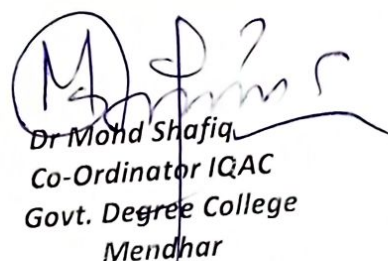 Dr Mohd Shafiq
Co-Ordinator IQAC
Govt. Degree College
Mendhar